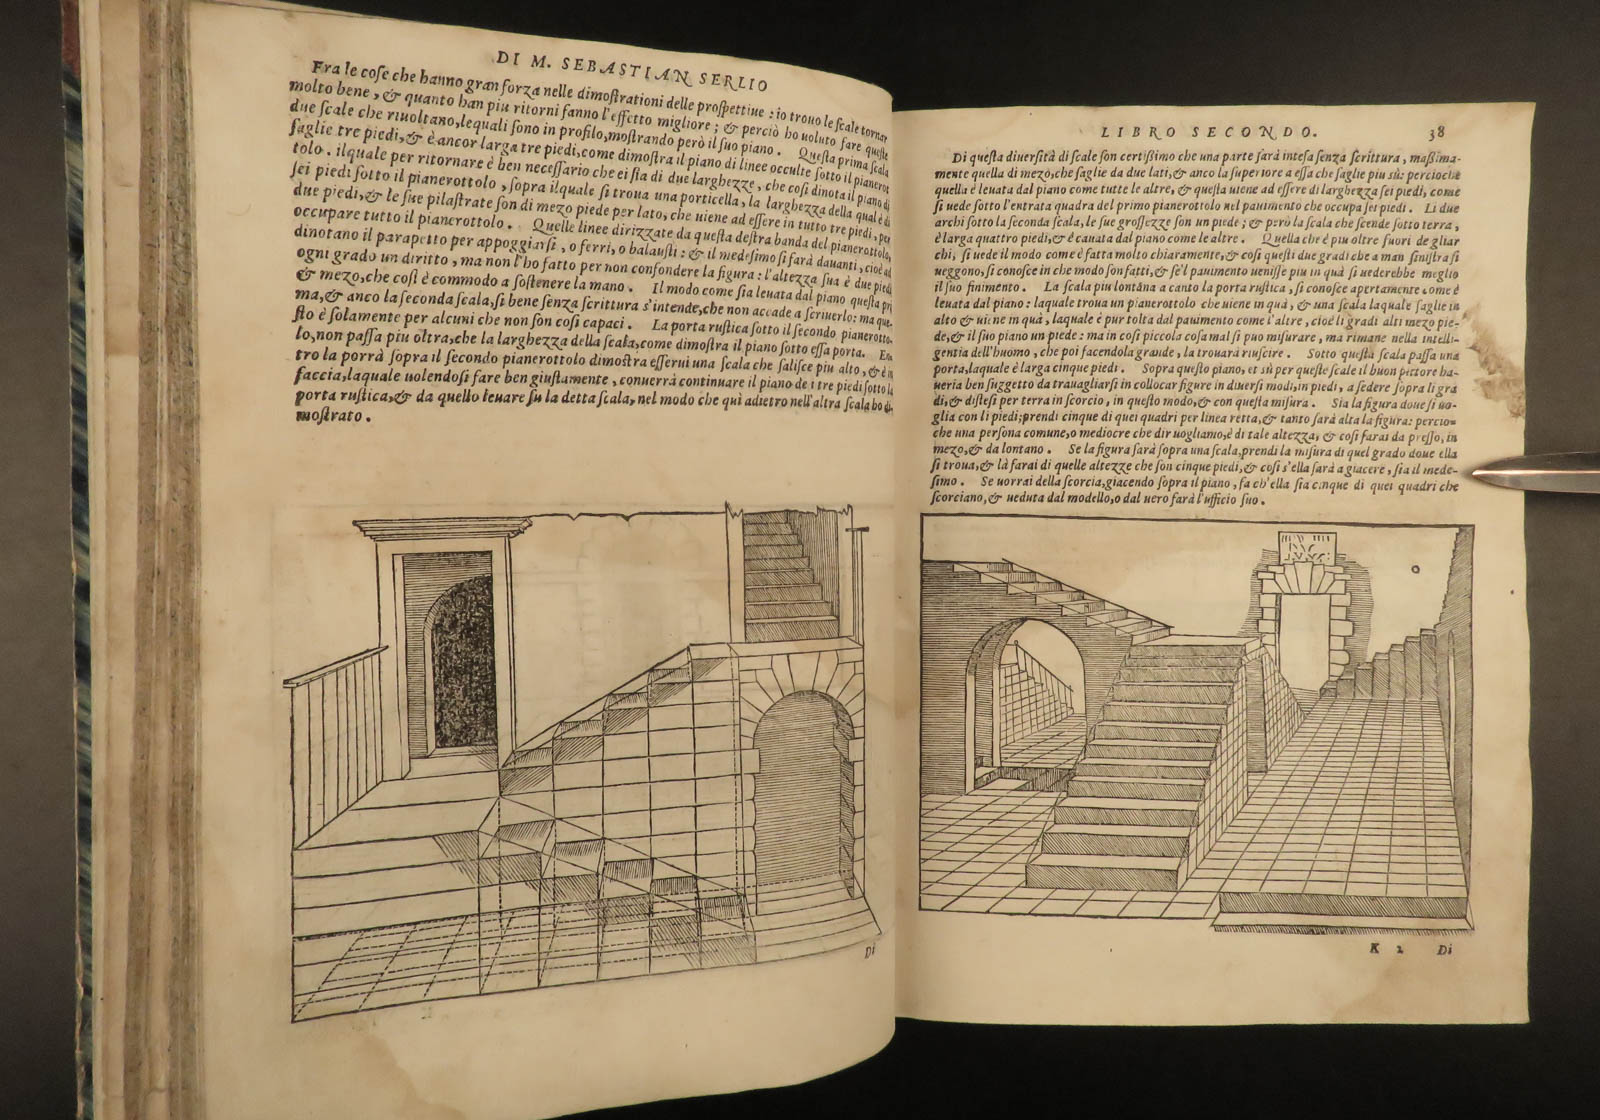 DI M. SEBASTIAN SERLIO
Fra le coſe che hanno gran forza nelle dimoſtrationi delle proſpettiue : io trouo le ſcale tornar
molto bene , & quanto han piu ritorni fanno l'effetto migliore ; & perciò ho uoluto fare queſte
due ſcale che riuoltano, lequali ſono in profilo, moſtrando però il ſuo piano . Queſta prima ſcala
ſaglie tre piedi, & è ancor larga tre piedi, come dimoſtra il piano di linee occulte ſotto il pianerot
tolo . ilquale per ritornare è ben neceſſario che ei ſia di due larghezze , che coſi dinota il piano di
ſei piedi ſotto il pianerottolo , ſopra ilquale ſi troua una porticella, la larghezza della qual è di
due piedi, & le ſue pilaſtrate ſon di mezo piede per lato, che uiene ad eſſere in tutto tre piedi, per
occupare tutto il pianerottolo . Quelle linee dirizzate da queſta deſtra banda del pianerottolo,
dinotano il parapetto per appoggiarſi , o ferri, o balauſti : & il medeſimo ſi farà dauanti, cioè ad
ogni grado un diritto , ma non l'ho fatto per non confondere la figura : l'altezza ſua è due piedi
& mezo, che coſi è commodo a ſoſtenere la mano . Il modo come ſia leuata dal piano queſta pri
ma, & anco la ſeconda ſcala, ſi bene ſenza ſcrittura s'intende, che non accade a ſcriuerlo: ma que-
ſto è ſolamente per alcuni che non ſon coſi capaci . La porta ruſtica ſotto il ſecondo pianerotto-
lo, non paſſa piu oltra, che la larghezza della ſcala, come dimoſtra il piano ſotto eſſa porta . En
tro la porta ſopra il ſecondo pianerottolo dimoſtra eſſerui una ſcala che ſaliſce piu alto , & è in
faccia, laquale uolendoſi fare ben giuſtamente , conuerrà continuare il piano de i tre piedi ſotto la
porta ruſtica, & da quello leuare ſu la detta ſcala, nel modo che quì adietro nell'altra ſcala ho di-
moſtrato .
Di
LIBRO SECONDO. 38
Di queſta diuerſità di ſcale ſon certiſſimo che una parte ſarà inteſa ſenza ſcrittura, maſſima-
mente quella di mezo, che ſaglie da due lati, & anco la ſuperiore a eſſa che ſaglie piu sù: percioche
quella è leuata dal piano come tutte le altre, & queſta uiene ad eſſere di larghezza ſei piedi, come
ſi uede ſotto l'entrata quadra del primo pianerottolo nel pauimento che occupa ſei piedi . Li due
archi ſotto la ſeconda ſcala, le ſue groſſezze ſon un piede ; & però la ſcala che ſcende ſotto terra ,
è larga quattro piedi, & è cauata dal piano come le altre . Quella che è piu oltre fuori de gliar
chi, ſi uede il modo come è fatta molto chiaramente, & coſi queſti due gradi che a man ſiniſtra ſi
ueggono, ſi conoſce in che modo ſon fatti, & ſe'l pauimento ueniſſe piu in quà ſi uederebbe meglio
il ſuo finimento . La ſcala piu lontana a canto la porta ruſtica , ſi conoſce apertamente come è
leuata dal piano : laquale troua un pianerottolo che uiene in quà , & una ſcala laquale ſaglie in
alto & uiene in quà , laquale è pur tolta dal pauimento come l'altre , cioè li gradi alti mezo pie-
de, & il ſuo piano un piede : ma in coſi piccola coſa mal ſi puo miſurare , ma rimane nella intelli-
gentia dell'huomo , che poi facendola grande , la trouarà riuſcire . Sotto queſta ſcala paſſa una
porta, laquale è larga cinque piedi . Sopra queſto piano, et sù per queſte ſcale il buon pittore ha-
ueria ben ſuggetto da trauagliarſi in collocar figure in diuerſi modi, in piedi , a ſedere ſopra li gra
di, & diſteſi per terra in ſcorcio , in queſto modo, & con queſta miſura . Sia la figura doue ſi uo-
glia con li piedi; prendi cinque di quei quadri per linea retta, & tanto ſarà alta la figura: percio=
che una perſona comune, o mediocre che dir uogliamo, è di tale altezza, & coſi farai da preſſo, in
mezo, & da lontano . Se la figura ſarà ſopra una ſcala, prendi la miſura di quel grado doue ella
ſi troua, & là farai di quelle altezze che ſon cinque piedi, & coſi s'ella ſarà a giacere , ſia il mede-
ſimo . Se uorrai della ſcorcia, giacendo ſopra il piano , fa ch'ella ſia cinque di quei quadri che
ſcorciano, & ueduta dal modello, o dal uero farà l'ufficio ſuo .
K 2 Di